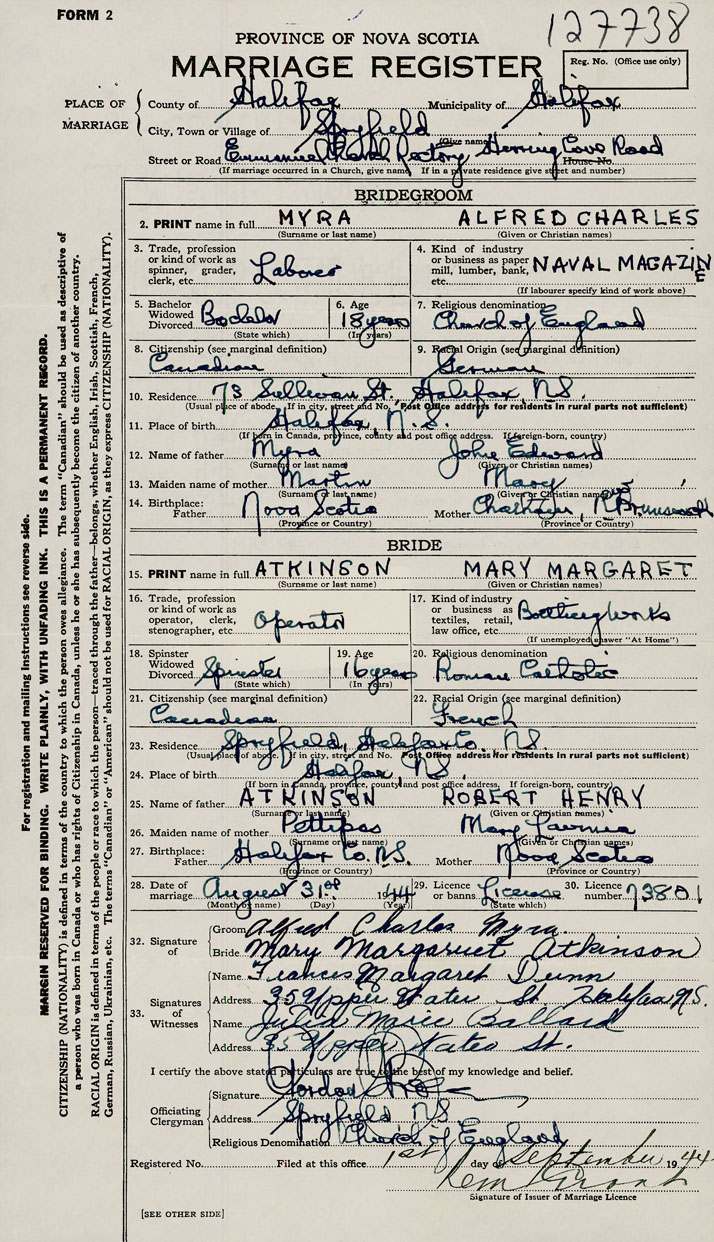 FORM 2
127738
PROVINCE OF NOVA SCOTIA
MARRIAGE REGISTER
Reg. No. (Office use only)
PLACE OF MARRIAGE
County of Halifax Municipality of Halifax
City, Town or Village of Spryfield
(Give name)
Street or Road Emmanuel Church Rectory Herring Cove Road House No.
(If marriage occurred in a Church, give name. If in a private residence give street and number)
BRIDEGROOM
2. PRINT name in full MYRA ALFRED CHARLES
(Surname or last name) (Given or Christian names)
3. Trade, profession or kind of work as spinner, grader, clerk, etc. Laborer
4. Kind of industry or business as paper mill, lumber, bank, etc. NAVAL MAGAZINE
(If labourer specify kind of work above)
5. Bachelor Widowed Divorced Bachelor (State which)
6. Age 18 years (In years)
7. Religious denomination Church of England
8. Citizenship (see marginal definition) Canadian
9. Racial Origin (see marginal definition) German
10. Residence 73 Sullivan St., Halifax, N.S.
(Usual place of abode. If in city, street and No. Post Office address for residents in rural parts not sufficient)
11. Place of birth Halifax, N.S.
(If born in Canada, province, county and post office address. If foreign-born, country)
12. Name of father Myra John Edward
(Surname or last name) (Given or Christian names)
13. Maiden name of mother Martin Mary
(Surname or last name) (Given or Christian names)
14. Birthplace: Father Nova Scotia Mother Chatham, N. Brunswick
(Province or Country) (Province or Country)
BRIDE
15. PRINT name in full ATKINSON MARY MARGARET
(Surname or last name) (Given or Christian names)
16. Trade, profession or kind of work as operator, clerk, stenographer, etc. Operator
17. Kind of industry or business as textiles, retail, law office, etc. Bottling Works
(If unemployed answer "At Home")
18. Spinster Widowed Divorced Spinster (State which)
19. Age 16 years (In years)
20. Religious denomination Roman Catholic
21. Citizenship (see marginal definition) Canadian
22. Racial Origin (see marginal definition) French
23. Residence Spryfield, Halifax Co. N.S.
(Usual place of abode. If in city, street and No. Post Office address for residents in rural parts not sufficient)
24. Place of birth Halifax, N.S.
(If born in Canada, province, county and post office address. If foreign-born, country)
25. Name of father ATKINSON ROBERT HENRY
(Surname or last name) (Given or Christian names)
26. Maiden name of mother Pettipas Mary Lavinia
(Surname or last name) (Given or Christian names)
27. Birthplace: Father Halifax Co. N.S. Mother Nova Scotia
(Province or Country) (Province or Country)
28. Date of marriage August 31st 1944
(Month by name) (Day) (Year)
29. Licence or banns License (State which)
30. Licence number 73801
32. Signature of
Groom Alfred Charles Myra.
Bride Mary Margaret Atkinson
33. Signatures of Witnesses
Name Frances Margaret Dunn
Address 35 Upper Water St Halifax N.S.
Name Julia Marie Ballard
Address 35 Upper Water St.
I certify the above stated particulars are true to the best of my knowledge and belief.
Officiating Clergyman
Signature Gordon
Address Spryfield NS
Religious Denomination Church of England
Registered No. Filed at this office 1st day of September 1944
Signature of Issuer of Marriage Licence
[SEE OTHER SIDE]
For registration and mailing instructions see reverse side.
MARGIN RESERVED FOR BINDING. WRITE PLAINLY, WITH UNFADING INK. THIS IS A PERMANENT RECORD.
CITIZENSHIP (NATIONALITY) is defined in terms of the country to which the person owes allegiance. The term "Canadian" should be used as descriptive of
a person who was born in Canada or who has rights of Citizenship in Canada, unless he or she has subsequently become the citizen of another country.
RACIAL ORIGIN is defined in terms of the people or race to which the person—traced through the father—belongs, whether English, Irish, Scottish, French,
German, Russian, Ukrainian, etc. The terms "Canadian" or "American" should not be used for RACIAL ORIGIN, as they express CITIZENSHIP (NATIONALITY).